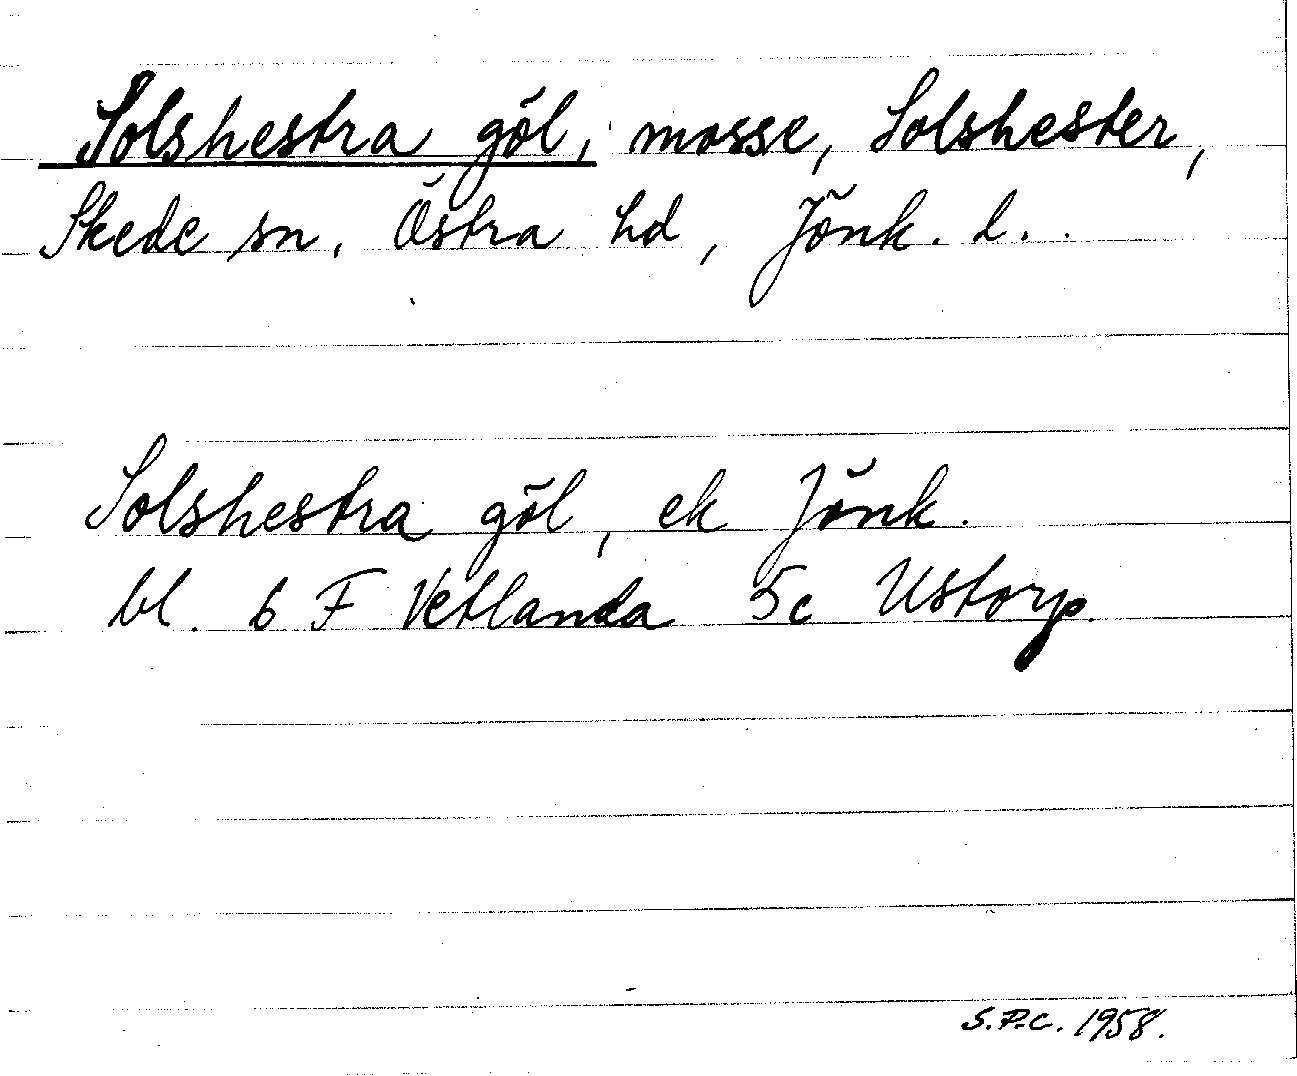 Solshestra göl, mosse, Solshester,
Skede sn, Östra hd, Jönk. l.
Solshestra göl, ek Jönk.
bl. 6 F Vetlanda 5c Ustorp.
S.P.C. 1958.